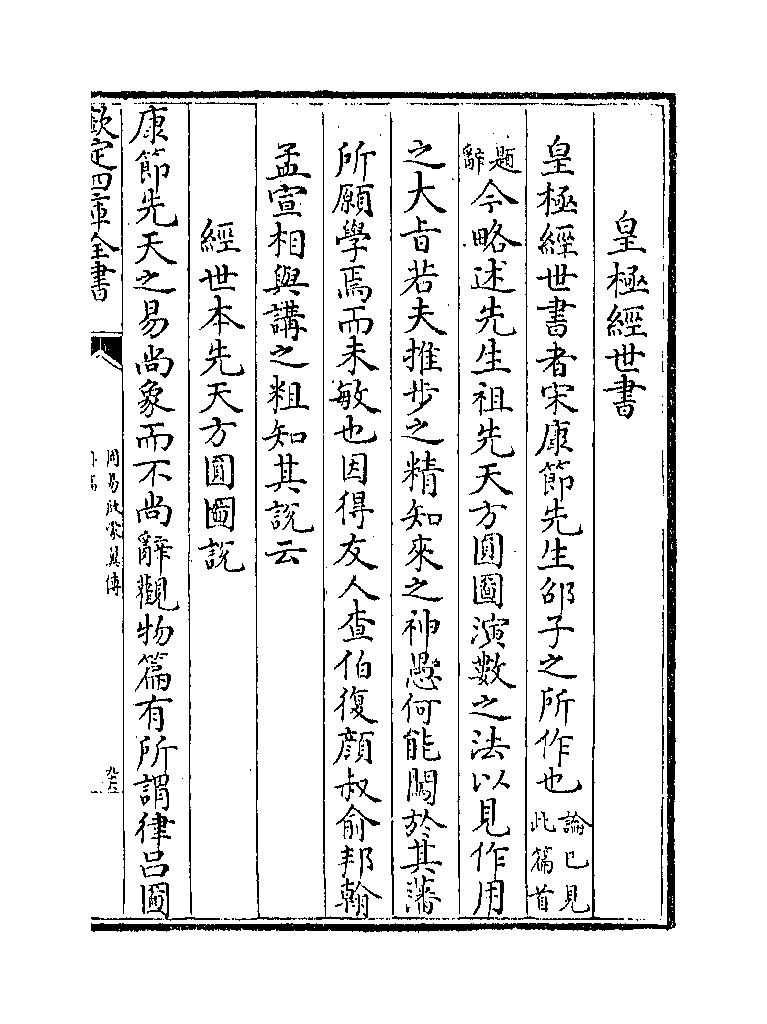 皇極經世書
皇極經世書者宋康節先生邵子之所作也論已見此篇首
題辭今略述先生祖先天方圓圖演數之法以見作用
之大㫖若夫推步之精知來之神愚何能闖於其藩
所願學焉而未敏也因得友人查伯復顔叔俞邦翰
孟宣相與講之粗知其說云
經世本先天方圓圖說
康節先天之易尚象而不尚辭觀物篇有所謂律呂圖
欽定四庫全書
周易啟蒙翼傳
外篇